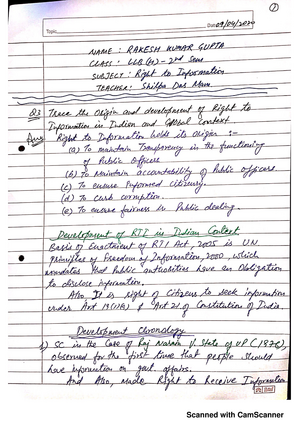 ①
Date 09/04/2020
Topic
NAME : RAKESH KUMAR GUPTA
CLASS : LLB (H) - 2nd Sem
SUBJECT : Right to Information
TEACHER : Shilpa Das Mam
Q3 Trace the Origin and development of Right to
Information in Indian and Global Context
Ans Right to Information holds its Origin :-
(a) To maintain Transparency in the functioning
of Public Officers
(b) To Maintain accountability of Public officers.
(c) To ensure informed citizenry.
(d) To curb corruption.
(e) To ensure fairness in Public dealing.
Development of RTI in Indian Context
Basis of Enactment of RTI Act, 2005 is UN
principles of Freedom of Information, 2000, which
mandates that Public authorities have an Obligation
to disclose information.
Also, It is right of Citizens to seek information
under Art 19(1)(a) & Art 21 of Constitution of India.
Development Chronology
1) SC in the Case of Raj Narain V. State of UP (1975),
observed for the first time that people should
have information on govt. affairs.
And Also, made Right to Receive Information
Scanned with CamScanner